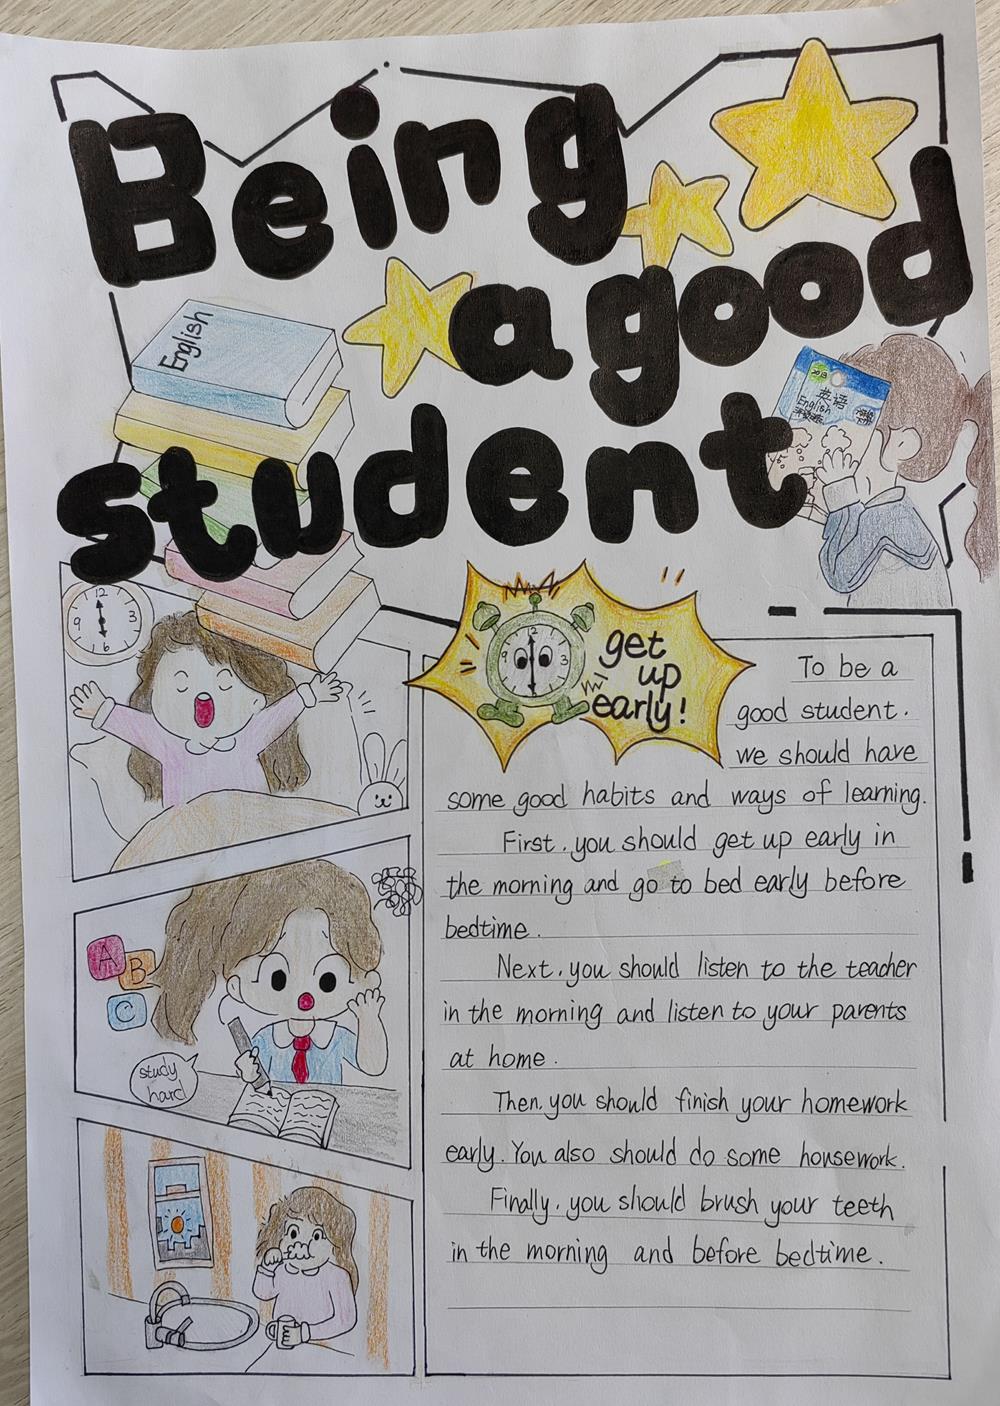 Being
a good
student
English
英语
English
12
3
6
9
12
3
9
get
up
early!
To be a
good student.
we should have
some good habits and ways of learning.
First, you should get up early in
the morning and go to bed early before
bedtime.
Next, you should listen to the teacher
in the morning and listen to your parents
at home.
Then, you should finish your homework
early. You also should do some housework.
Finally, you should brush your teeth
in the morning and before bedtime.
A
B
C
study
hard